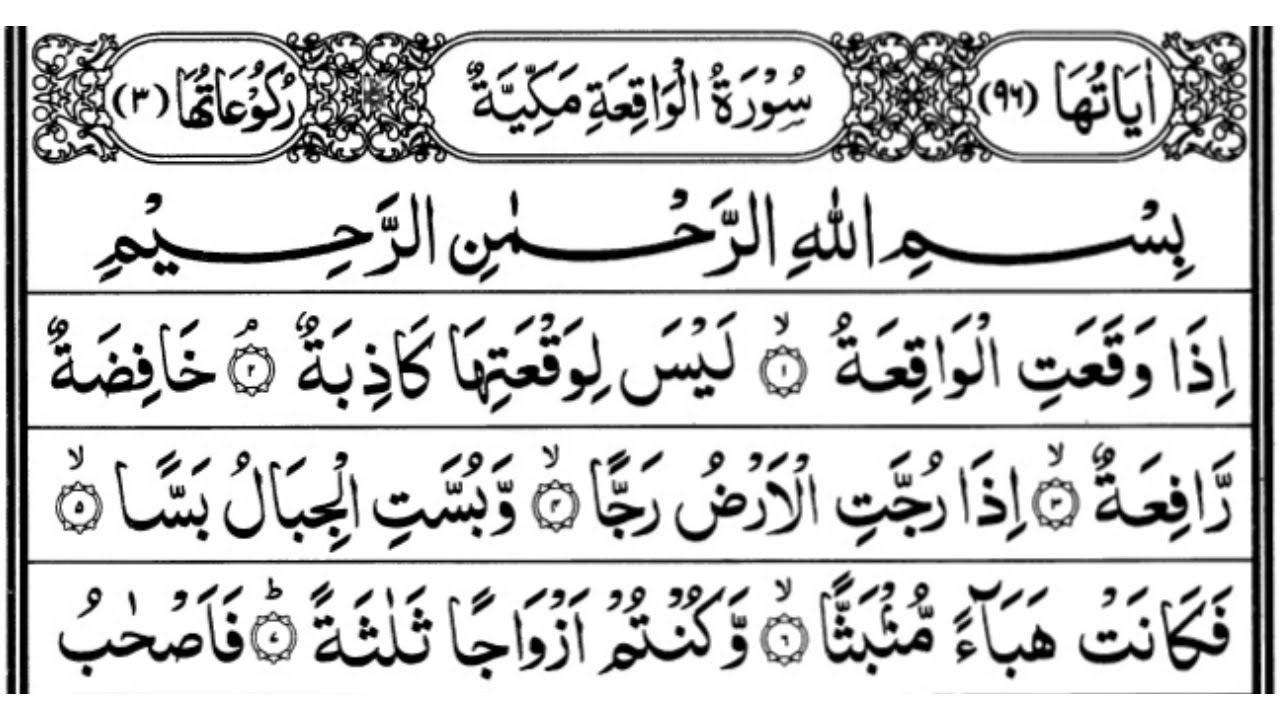 اٰيَاتُهَا (٩٦) سُوْرَةُ الْوَاقِعَةِ مَكِّيَّةٌ رُكُوْعَاتُهَا (٣)
بِسْمِ اللّٰهِ الرَّحْمٰنِ الرَّحِيْمِ
اِذَا وَقَعَتِ الْوَاقِعَةُ ۙ‏﴿۱﴾ لَيْسَ لِوَقْعَتِهَا كَاذِبَةٌ ۘ‏﴿۲﴾ خَافِضَةٌ
رَّافِعَةٌ ۙ‏﴿۳﴾ اِذَا رُجَّتِ الْاَرْضُ رَجًّا ۙ‏﴿۴﴾ وَّبُسَّتِ الْجِبَالُ بَسًّا ۙ‏﴿۵﴾
فَكَانَتْ هَبَآءً مُّنْۢبَثًّا ۙ‏﴿۶﴾ وَّكُنْتُمْ اَزْوَاجًا ثَلٰثَةً ؕ‏﴿۷﴾ فَاَصْحٰبُ